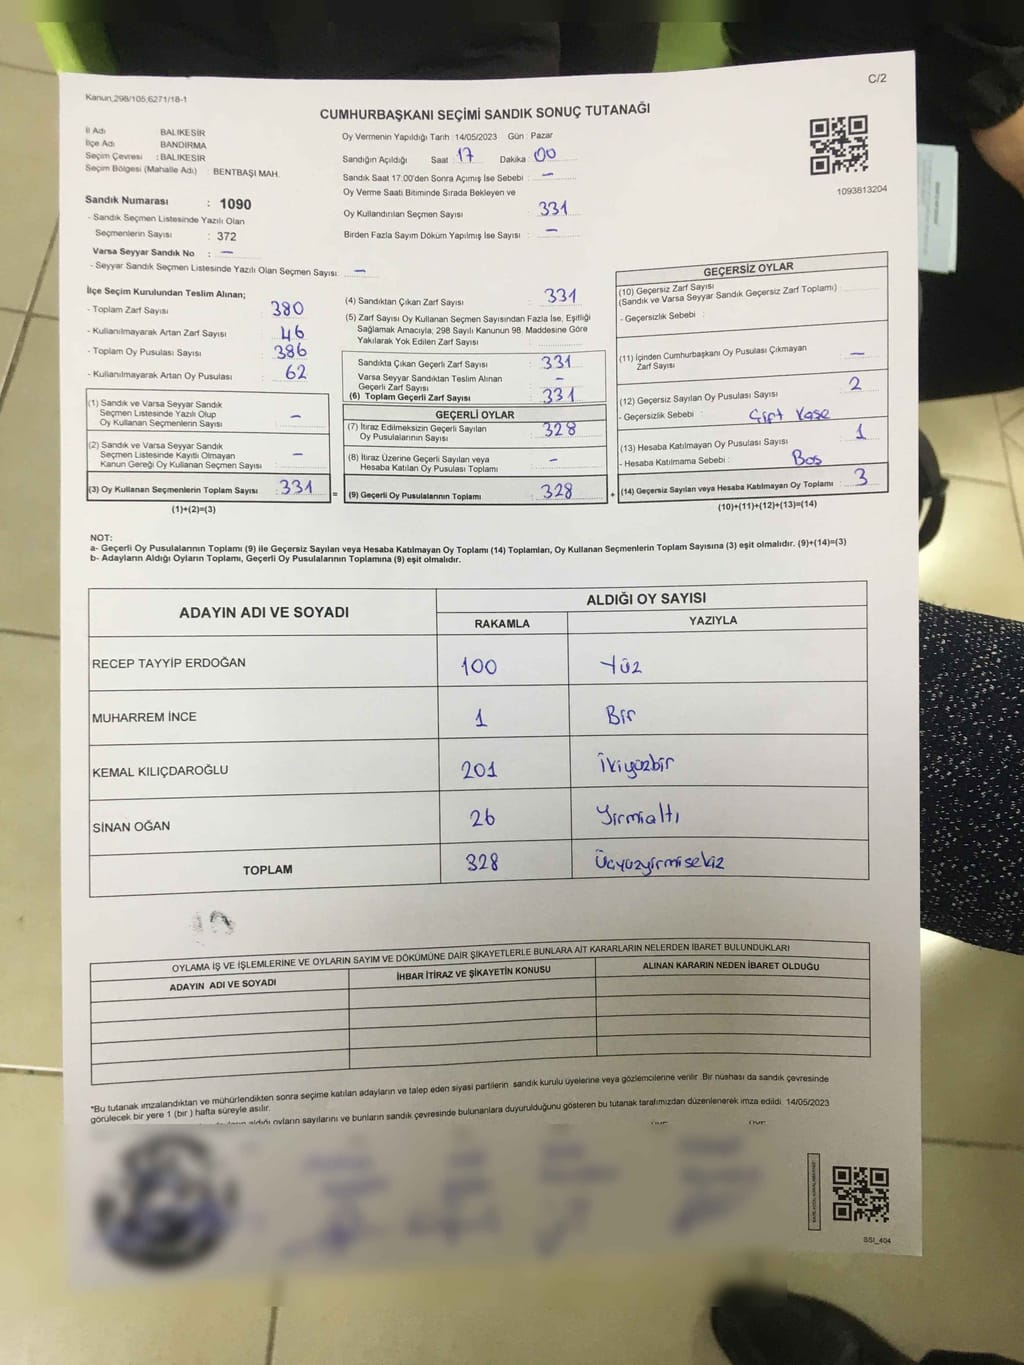 C/2
Kanun,298/105,6271/18-1
CUMHURBAŞKANI SEÇİMİ SANDIK SONUÇ TUTANAĞI
İl Adı BALIKESİR
İlçe Adı BANDIRMA
Seçim Çevresi : BALIKESİR
Seçim Bölgesi (Mahalle Adı) : BENTBAŞI MAH.
Sandık Numarası : 1090
- Sandık Seçmen Listesinde Yazılı Olan
Seçmenlerin Sayısı : 372
Varsa Seyyar Sandık No : -
- Seyyar Sandık Seçmen Listesinde Yazılı Olan Seçmen Sayısı: -
Oy Vermenin Yapıldığı Tarih : 14/05/2023 Gün : Pazar
Sandığın Açıldığı Saat : 17 Dakika : 00
Sandık Saat 17:00'den Sonra Açımış İse Sebebi : -
Oy Verme Saati Bitiminde Sırada Bekleyen ve
Oy Kullandırılan Seçmen Sayısı : 331
Birden Fazla Sayım Döküm Yapılmış İse Sayısı : -
1093813204
İlçe Seçim Kurulundan Teslim Alınan;
- Toplam Zarf Sayısı : 380
- Kullanılmayarak Artan Zarf Sayısı : 46
- Toplam Oy Pusulası Sayısı : 386
- Kullanılmayarak Artan Oy Pusulası : 62
(1) Sandık ve Varsa Seyyar Sandık
Seçmen Listesinde Yazılı Olup
Oy Kullanan Seçmenlerin Sayısı : -
(2) Sandık ve Varsa Seyyar Sandık
Seçmen Listesinde Kayıtlı Olmayan
Kanun Gereği Oy Kullanan Seçmen Sayısı : -
(3) Oy Kullanan Seçmenlerin Toplam Sayısı : 331
(1)+(2)=(3)
(4) Sandıktan Çıkan Zarf Sayısı : 331
(5) Zarf Sayısı Oy Kullanan Seçmen Sayısından Fazla İse, Eşitliği
Sağlamak Amacıyla; 298 Sayılı Kanunun 98. Maddesine Göre
Yakılarak Yok Edilen Zarf Sayısı :
Sandıkta Çıkan Geçerli Zarf Sayısı : 331
Varsa Seyyar Sandıktan Teslim Alınan
Geçerli Zarf Sayısı : -
(6) Toplam Geçerli Zarf Sayısı : 331
GEÇERLİ OYLAR
(7) İtiraz Edilmeksizin Geçerli Sayılan
Oy Pusulalarının Sayısı : 328
(8) İtiraz Üzerine Geçerli Sayılan veya
Hesaba Katılan Oy Pusulası Toplamı : -
= (9) Geçerli Oy Pusulalarının Toplamı : 328
GEÇERSİZ OYLAR
(10) Geçersiz Zarf Sayısı
(Sandık ve Varsa Seyyar Sandık Geçersiz Zarf Toplamı) :
- Geçersizlik Sebebi :
(11) İçinden Cumhurbaşkanı Oy Pusulası Çıkmayan
Zarf Sayısı : -
(12) Geçersiz Sayılan Oy Pusulası Sayısı : 2
- Geçersizlik Sebebi : Çift Kaşe
(13) Hesaba Katılmayan Oy Pusulası Sayısı : 1
- Hesaba Katılmama Sebebi : Boş
+ (14) Geçersiz Sayılan veya Hesaba Katılmayan Oy Toplamı : 3
(10)+(11)+(12)+(13)=(14)
NOT:
a- Geçerli Oy Pusulalarının Toplamı (9) ile Geçersiz Sayılan veya Hesaba Katılmayan Oy Toplamı (14) Toplamları, Oy Kullanan Seçmenlerin Toplam Sayısına (3) eşit olmalıdır. (9)+(14)=(3)
b- Adayların Aldığı Oyların Toplamı, Geçerli Oy Pusulalarının Toplamına (9) eşit olmalıdır.
ADAYIN ADI VE SOYADI ALDIĞI OY SAYISI
RAKAMLA YAZIYLA
RECEP TAYYİP ERDOĞAN 100 Yüz
MUHARREM İNCE 1 Bir
KEMAL KILIÇDAROĞLU 201 İkiyüzbir
SİNAN OĞAN 26 Yirmialtı
TOPLAM 328 Üçyüzyirmisekiz
OYLAMA İŞ VE İŞLEMLERİNE VE OYLARIN SAYIM VE DÖKÜMÜNE DAİR ŞİKAYETLERLE BUNLARA AİT KARARLARIN NELERDEN İBARET BULUNDUKLARI
ADAYIN ADI VE SOYADI İHBAR İTİRAZ VE ŞİKAYETİN KONUSU ALINAN KARARIN NEDEN İBARET OLDUĞU
*Bu tutanak imzalandıktan ve mühürlendikten sonra seçime katılan adayların ve talep eden siyasi partilerin sandık kurulu üyelerine veya gözlemcilerine verilir .Bir nüshası da sandık çevresinde
görülecek bir yere 1 (bir ) hafta süreyle asılır.
aldığı oyların sayılarını ve bunların sandık çevresinde bulunanlara duyurulduğunu gösteren bu tutanak tarafımızdan düzenlenerek imza edildi. 14/05/2023
SSI_404